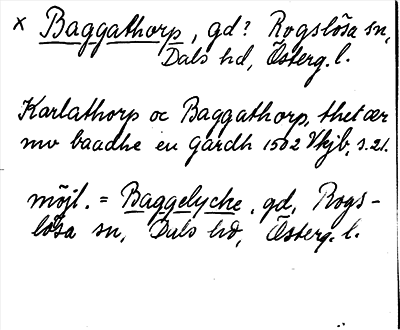 x Baggathorp, gd? Rogslösa sn,
Dals hd, Österg. l.
Karlathorp oc Baggathorp, thet ær
nw baadhe en gardh 1502 Vkjb, s. 21.
möjl. = Baggelyche, gd, Rogs-
lösa sn, Dals hd, Österg. l.